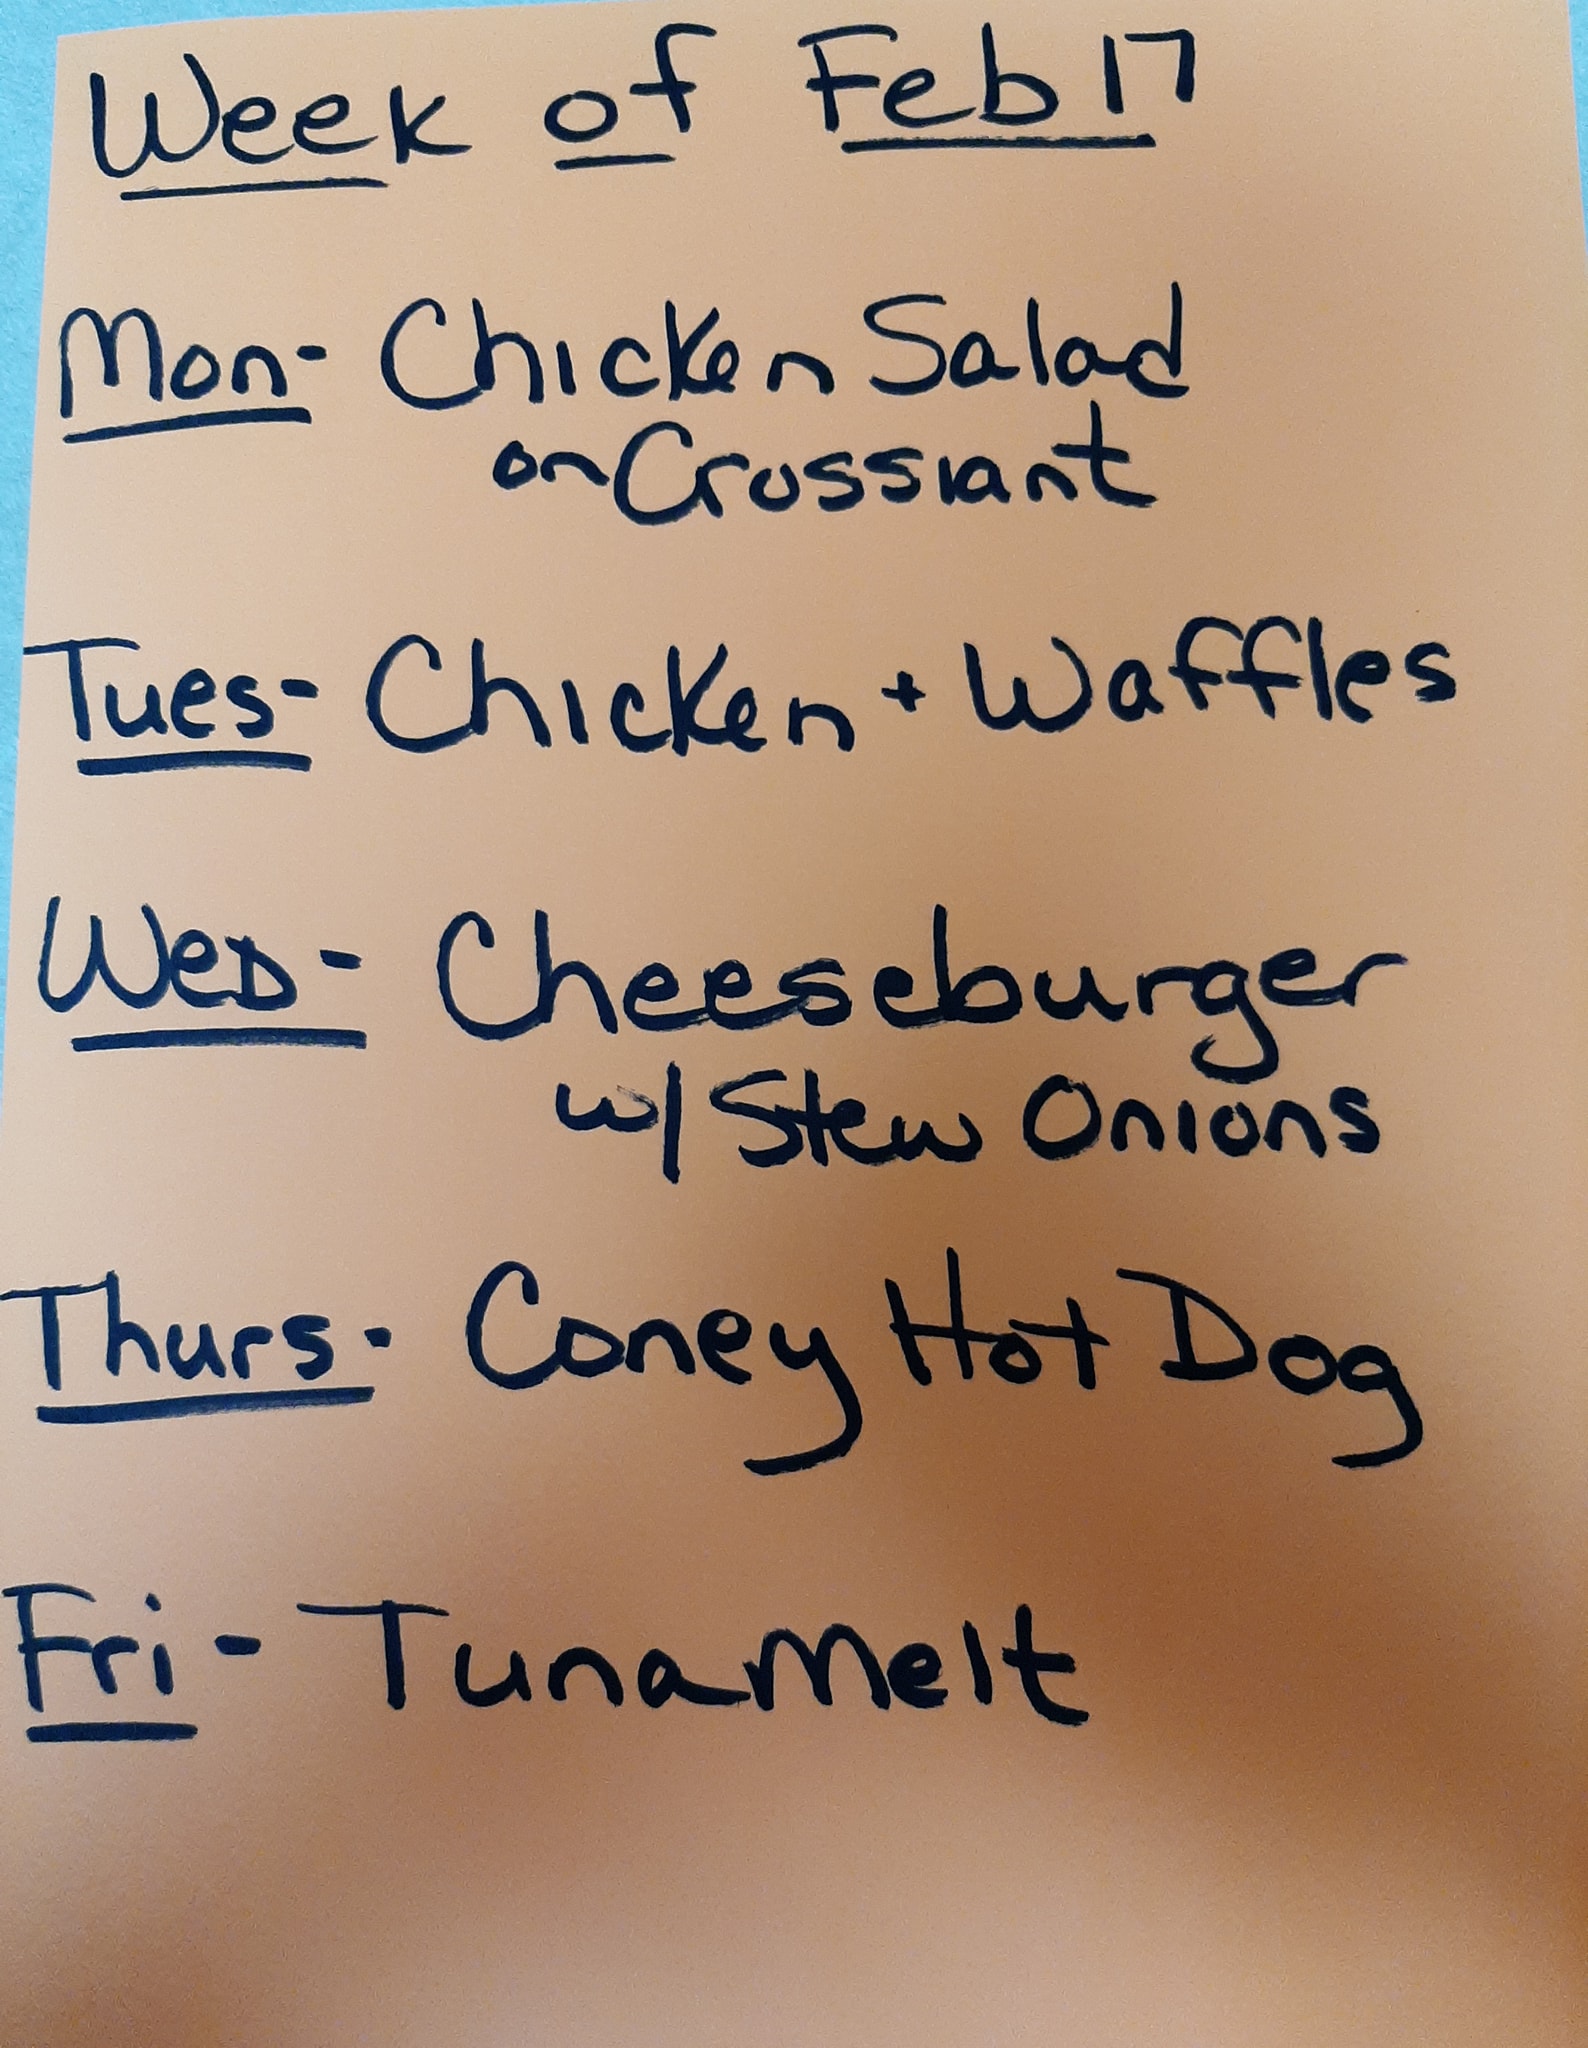 Week of Feb 17
Mon- Chicken Salad
on Crossiant
Tues- Chicken + Waffles
Wed- Cheeseburger
w/ Stew Onions
Thurs- Coney Hot Dog
Fri- Tuna Melt